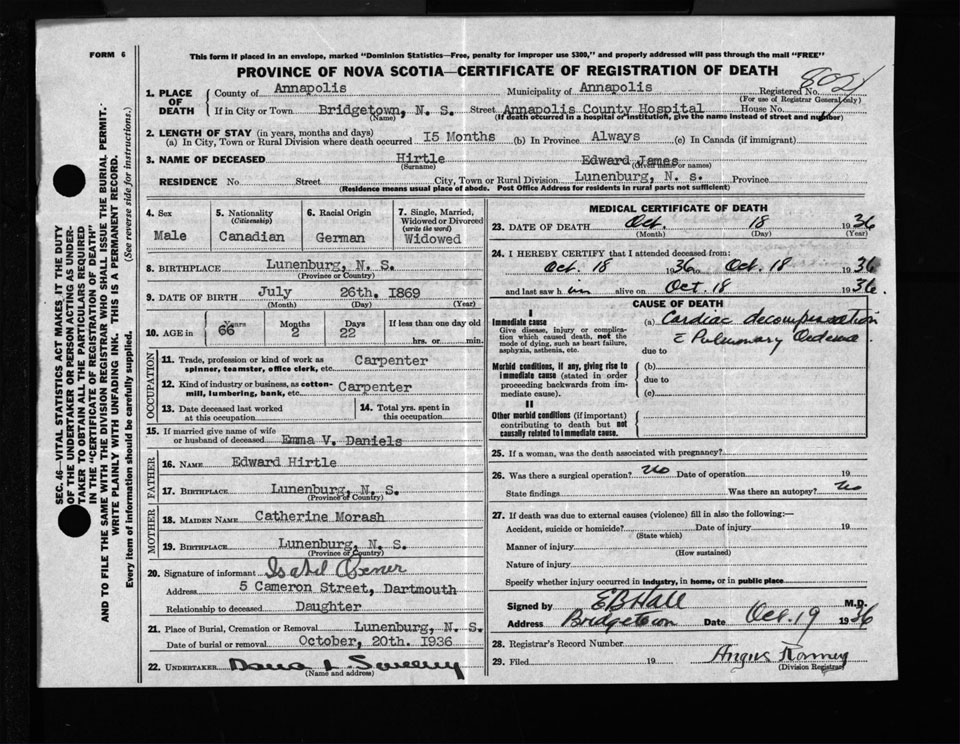 FORM 6
This form if placed in an envelope, marked "Dominion Statistics—Free, penalty for improper use $300," and properly addressed will pass through the mail "FREE"
PROVINCE OF NOVA SCOTIA—CERTIFICATE OF REGISTRATION OF DEATH
SEC. 46—VITAL STATISTICS ACT MAKES IT THE DUTY
OF THE UNDERTAKER OR PERSON ACTING AS UNDER-
TAKER TO OBTAIN ALL THE PARTICULARS REQUIRED
IN THE "CERTIFICATE OF REGISTRATION OF DEATH"
AND TO FILE THE SAME WITH THE DIVISION REGISTRAR WHO SHALL ISSUE THE BURIAL PERMIT.
WRITE PLAINLY WITH UNFADING INK. THIS IS A PERMANENT RECORD.
Every item of information should be carefully supplied. (See reverse side for instructions.)
1. PLACE OF DEATH
County of Annapolis Municipality of Annapolis Registered No.
(For use of Registrar General only)
If in City or Town Bridgetown, N. S. Street Annapolis County Hospital House No.
(Name) (If death occurred in a hospital or institution, give the name instead of street and number)
2. LENGTH OF STAY (in years, months and days)
(a) In City, Town or Rural Division where death occurred 15 Months (b) In Province Always (c) In Canada (if immigrant)
3. NAME OF DECEASED Hirtle Edward James
(Surname) (Given name or names)
RESIDENCE No. Street City, Town or Rural Division Lunenburg, N. s. Province
(Residence means usual place of abode. Post Office Address for residents in rural parts not sufficient)
4. Sex
Male
5. Nationality
(Citizenship)
Canadian
6. Racial Origin
German
7. Single, Married, Widowed or Divorced
(write the word)
Widowed
8. BIRTHPLACE Lunenburg, N. S.
(Province or Country)
9. DATE OF BIRTH July 26th. 1869
(Month) (Day) (Year)
10. AGE in Years Months Days If less than one day old
66 2 22 hrs. or min.
OCCUPATION
11. Trade, profession or kind of work as Carpenter
spinner, teamster, office clerk, etc.
12. Kind of industry or business, as cotton- Carpenter
mill, lumbering, bank, etc.
13. Date deceased last worked
at this occupation
14. Total yrs. spent in
this occupation
15. If married give name of wife
or husband of deceased Emma V. Daniels
FATHER
16. NAME Edward Hirtle
17. BIRTHPLACE Lunenburg, N. S.
(Province or Country)
MOTHER
18. MAIDEN NAME Catherine Morash
19. BIRTHPLACE Lunenburg, N. S.
(Province or Country)
20. Signature of informant Isabel Oxner
Address 5 Cameron Street, Dartmouth
Relationship to deceased Daughter
21. Place of Burial, Cremation or Removal Lunenburg, N. S.
Date of burial or removal October, 20th. 1936
22. UNDERTAKER Dana L. Sweeny
(Name and address)
MEDICAL CERTIFICATE OF DEATH
23. DATE OF DEATH Oct. 18 1936
(Month) (Day) (Year)
24. I HEREBY CERTIFY that I attended deceased from:
Oct. 18 1936 to Oct. 18 1936
and last saw him alive on Oct. 18 1936.
CAUSE OF DEATH
I
Immediate cause
Give disease, injury or complica-
tion which caused death, not the
mode of dying, such as heart failure,
asphyxia, asthenia, etc.
(a) Cardiac decompensation
Pulmonary Oedema
due to
Morbid conditions, if any, giving rise to
immediate cause (stated in order
proceeding backwards from im-
mediate cause).
(b)
due to
(c)
II
Other morbid conditions (if important)
contributing to death but not
causally related to immediate cause.
25. If a woman, was the death associated with pregnancy?
26. Was there a surgical operation? no Date of operation 19
State findings Was there an autopsy? no
27. If death was due to external causes (violence) fill in also the following:—
Accident, suicide or homicide? Date of injury 19
(State which)
Manner of injury
(How sustained)
Nature of injury
Specify whether injury occurred in industry, in home, or in public place
Signed by E B Hall M.D.
Address Bridgetown Date Oct. 19 1936
28. Registrar's Record Number
29. Filed 19 Angus
(Division Registrar)